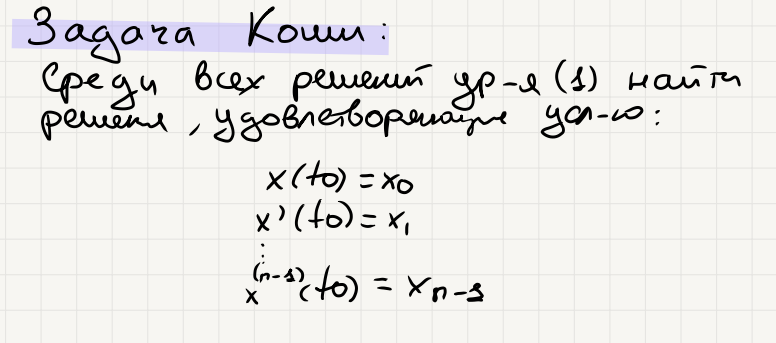 Задача Коши:
Среди всех решений ур-я (1) найти
решения, удовлетворяющие усл-ю:
x(t0) = x0
x'(t0) = x1
⋮
x^(n-1)(t0) = xn-1